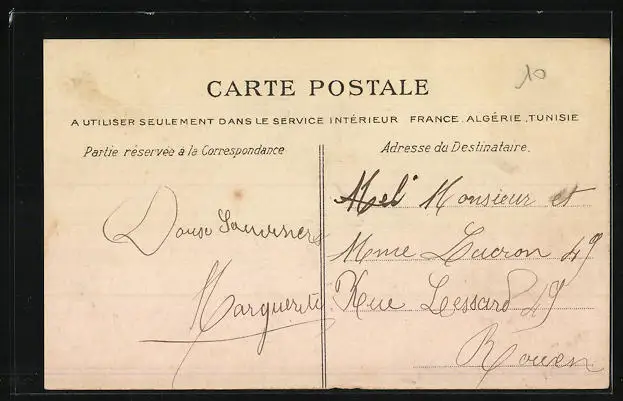 10
CARTE POSTALE
A UTILISER SEULEMENT DANS LE SERVICE INTÉRIEUR FRANCE, ALGÉRIE, TUNISIE
Partie réservée à la Correspondance
Adresse du Destinataire.
Doux Souvenirs
Marguerite
Monsieur et
Mme Lucron 49
Rue Lessard 49
Rouen